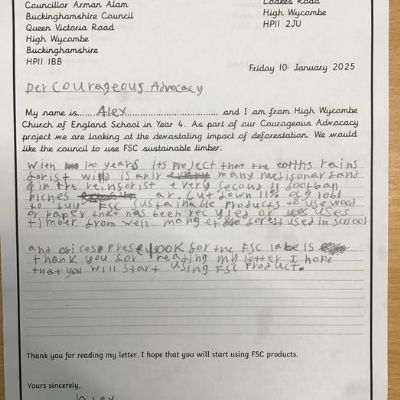 Councillor Arman Alam
Buckinghamshire Council
Queen Victoria Road
High Wycombe
Buckinghamshire
HP11 1BB
Road
High Wycombe
HP11 2JU
Friday 10 January 2025
Courageous Advocacy
My name is Alex and I am from High Wycombe
Church of England School in Year 4. As part of our Courageous Advocacy
project we are looking at the devastating impact of deforestation. We would
like the council to use FSC sustainable timber.
With 100 years its project that the eoiths rains
forist will many
in the every second 11 football
piches ar. cut down 11%
to FSC sustainable products to use wood
or paper that has been recycled or uses
timber from well forest used in school
and Look for the FSC lable is
thank you for reading my letter I hope
that you will start using FSC Product.
Thank you for reading my letter. I hope that you will start using FSC products.
Yours sincerely,
Alex